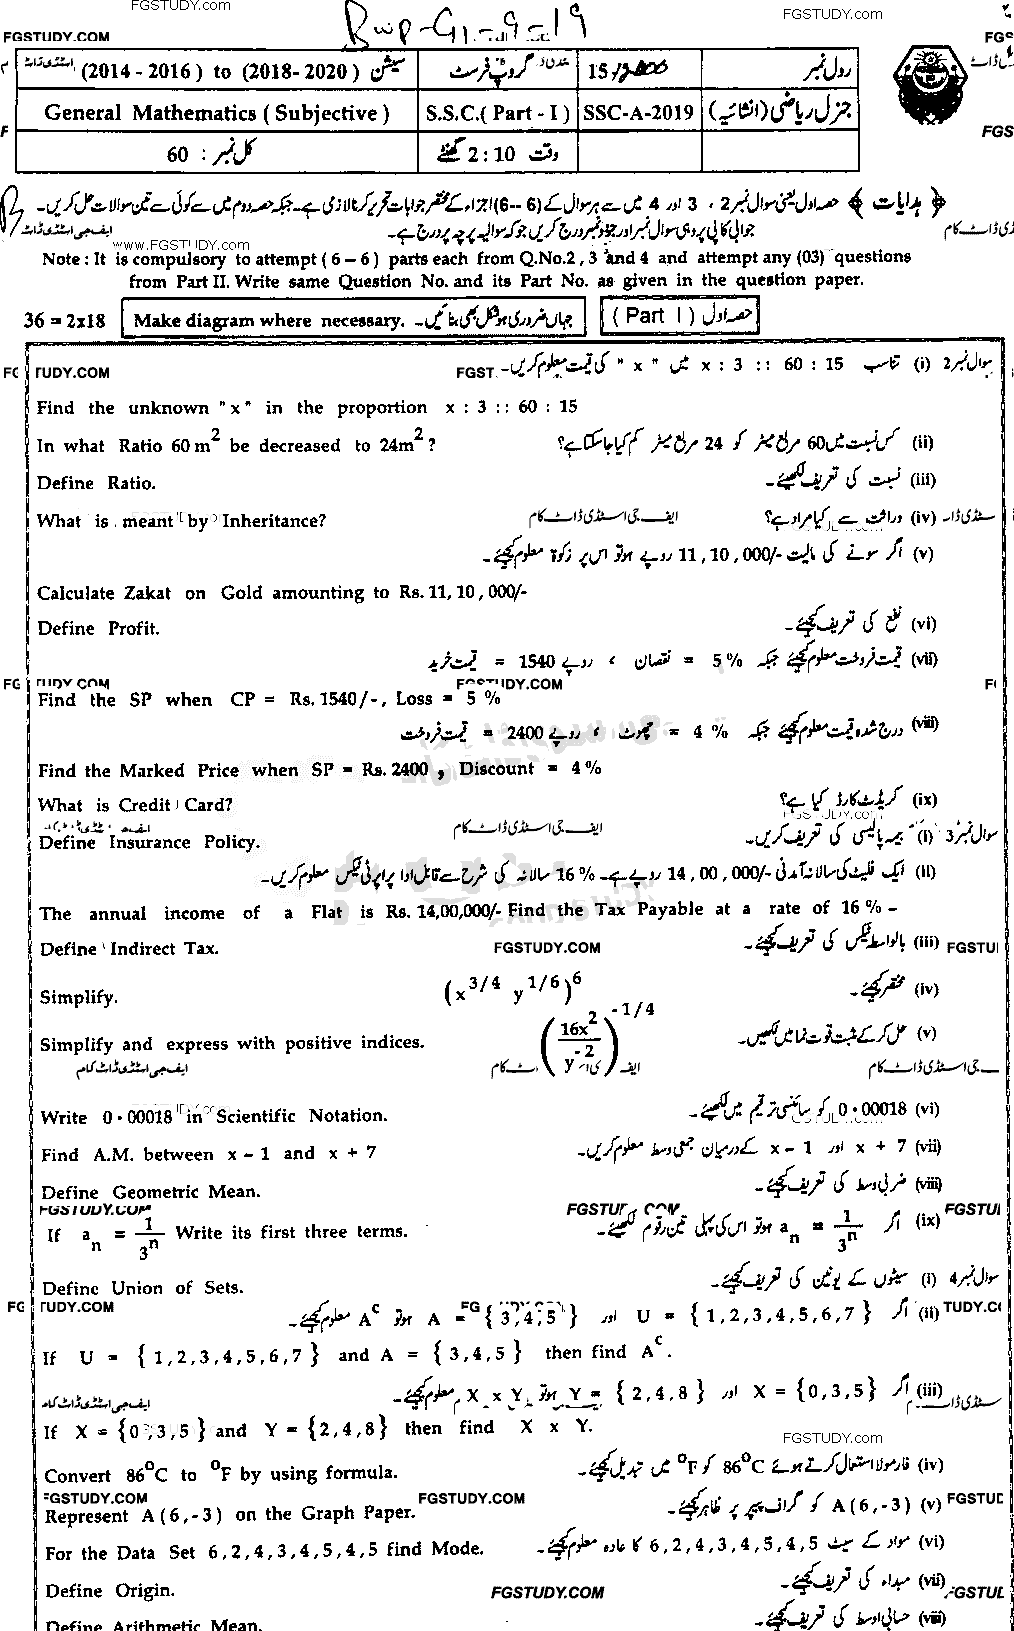 FGSTUDY.COM
FGSTUDY.com
Bwp-G1-9-19
FGSTUDY.COM
رول نمبر 15/2000 گروپ فرسٹ سیشن (2014 - 2016) to (2018- 2020)
جنرل ریاضی (انشائیہ) SSC-A-2019 S.S.C.( Part - I ) General Mathematics ( Subjective )
وقت 2:10 گھنٹے کل نمبر : 60
﴿ ہدایات ﴾ حصہ اول یعنی سوال نمبر 2 ، 3 اور 4 میں سے ہر سوال کے (6 -- 6) اجزاء کے مختصر جوابات تحریر کرنا لازمی ہے۔ جبکہ حصہ دوم میں سے کوئی سے تین سوالات حل کریں۔
جوابی کاپی پر وہی سوال نمبر اور جزو نمبر درج کریں جو کہ سوالیہ پرچہ پر درج ہے۔
www.FGSTUDY.com
Note : It is compulsory to attempt ( 6 – 6 ) parts each from Q.No.2 , 3 and 4 and attempt any (03) questions
from Part II. Write same Question No. and its Part No. as given in the question paper.
36 = 2x18 Make diagram where necessary. جہاں ضروری ہو شکل بھی بنائیں۔ ( Part I ) حصہ اول
سوال نمبر 2 (i) تناسب x : 3 :: 60 : 15 میں " x " کی قیمت معلوم کریں۔
Find the unknown "x" in the proportion x : 3 :: 60 : 15
In what Ratio 60 m² be decreased to 24m² ? (ii) کس نسبت میں 60 مربع میٹر کو 24 مربع میٹر کم کیا جا سکتا ہے؟
Define Ratio. (iii) نسبت کی تعریف لکھیئے۔
What is meant by Inheritance? (iv) وراثت سے کیا مراد ہے؟
(v) اگر سونے کی مالیت 11,10,000/- روپے ہو تو اس پر زکوٰۃ معلوم کیجئے۔
Calculate Zakat on Gold amounting to Rs. 11, 10 , 000/-
Define Profit. (vi) نفع کی تعریف کیجئے۔
(vii) قیمت فروخت معلوم کیجئے جبکہ 5 % = نقصان ، روپے 1540 = قیمت خرید
FGSTUDY.COM
Find the SP when CP = Rs. 1540/-, Loss = 5 %
(viii) درج شدہ قیمت معلوم کیجئے جبکہ 4 % = چھوٹ ، روپے 2400 = قیمت فروخت
Find the Marked Price when SP = Rs. 2400 , Discount = 4%
What is Credit Card? (ix) کریڈٹ کارڈ کیا ہے؟
Define Insurance Policy. سوال نمبر 3 (i) بیمہ پالیسی کی تعریف کریں۔
(ii) ایک فلیٹ کی سالانہ آمدنی 14,00,000/- روپے ہے۔ 16 % سالانہ کی شرح سے قابل ادا پراپرٹی ٹیکس معلوم کریں۔
The annual income of a Flat is Rs. 14,00,000/- Find the Tax Payable at a rate of 16 % –
Define Indirect Tax. FGSTUDY.COM (iii) بالواسطہ ٹیکس کی تعریف کیجئے۔
Simplify. (x^3/4 y^1/6)^6 (iv) مختصر کیجئے۔
Simplify and express with positive indices. (16x²/y⁻²)^-1/4 (v) حل کر کے مثبت قوت نما میں لکھیں۔
Write 0·00018 in Scientific Notation. (vi) 0·00018 کو سائنسی ترقیم میں لکھیئے۔
Find A.M. between x – 1 and x + 7 (vii) x + 7 اور x – 1 کے درمیان جمعی وسط معلوم کریں۔
Define Geometric Mean. (viii) ضربی وسط کی تعریف کیجئے۔
FGSTUDY.COM
If aₙ = 1/3ⁿ Write its first three terms. (ix) اگر aₙ = 1/3ⁿ ہو تو اس کی پہلی تین رقوم لکھیئے۔
Define Union of Sets. سوال نمبر 4 (i) سیٹوں کے یونین کی تعریف کیجئے۔
(ii) اگر U = { 1,2,3,4,5,6,7 } اور A = { 3,4,5 } ہو تو Aᶜ معلوم کیجئے۔
If U = { 1,2,3,4,5,6,7 } and A = { 3,4,5 } then find Aᶜ.
(iii) اگر X = {0,3,5} اور Y = { 2,4,8 } ہو تو X x Y معلوم کیجئے۔
If X = {0,3,5} and Y = {2,4,8} then find X x Y.
FGSTUDY.com
Convert 86°C to °F by using formula. (iv) فارمولا استعمال کرتے ہوئے 86°C کو °F میں تبدیل کیجئے۔
FGSTUDY.COM
Represent A ( 6 , - 3 ) on the Graph Paper. (v) A ( 6 , - 3 ) کو گراف پیپر پر ظاہر کیجئے۔
For the Data Set 6,2,4,3,4,5,4,5 find Mode. (vi) مواد کے سیٹ 6,2,4,3,4,5,4,5 کا عادہ معلوم کیجئے۔
Define Origin. FGSTUDY.COM (vii) مبداء کی تعریف کیجئے۔
Define Arithmetic Mean. (viii) حسابی اوسط کی تعریف کیجئے۔